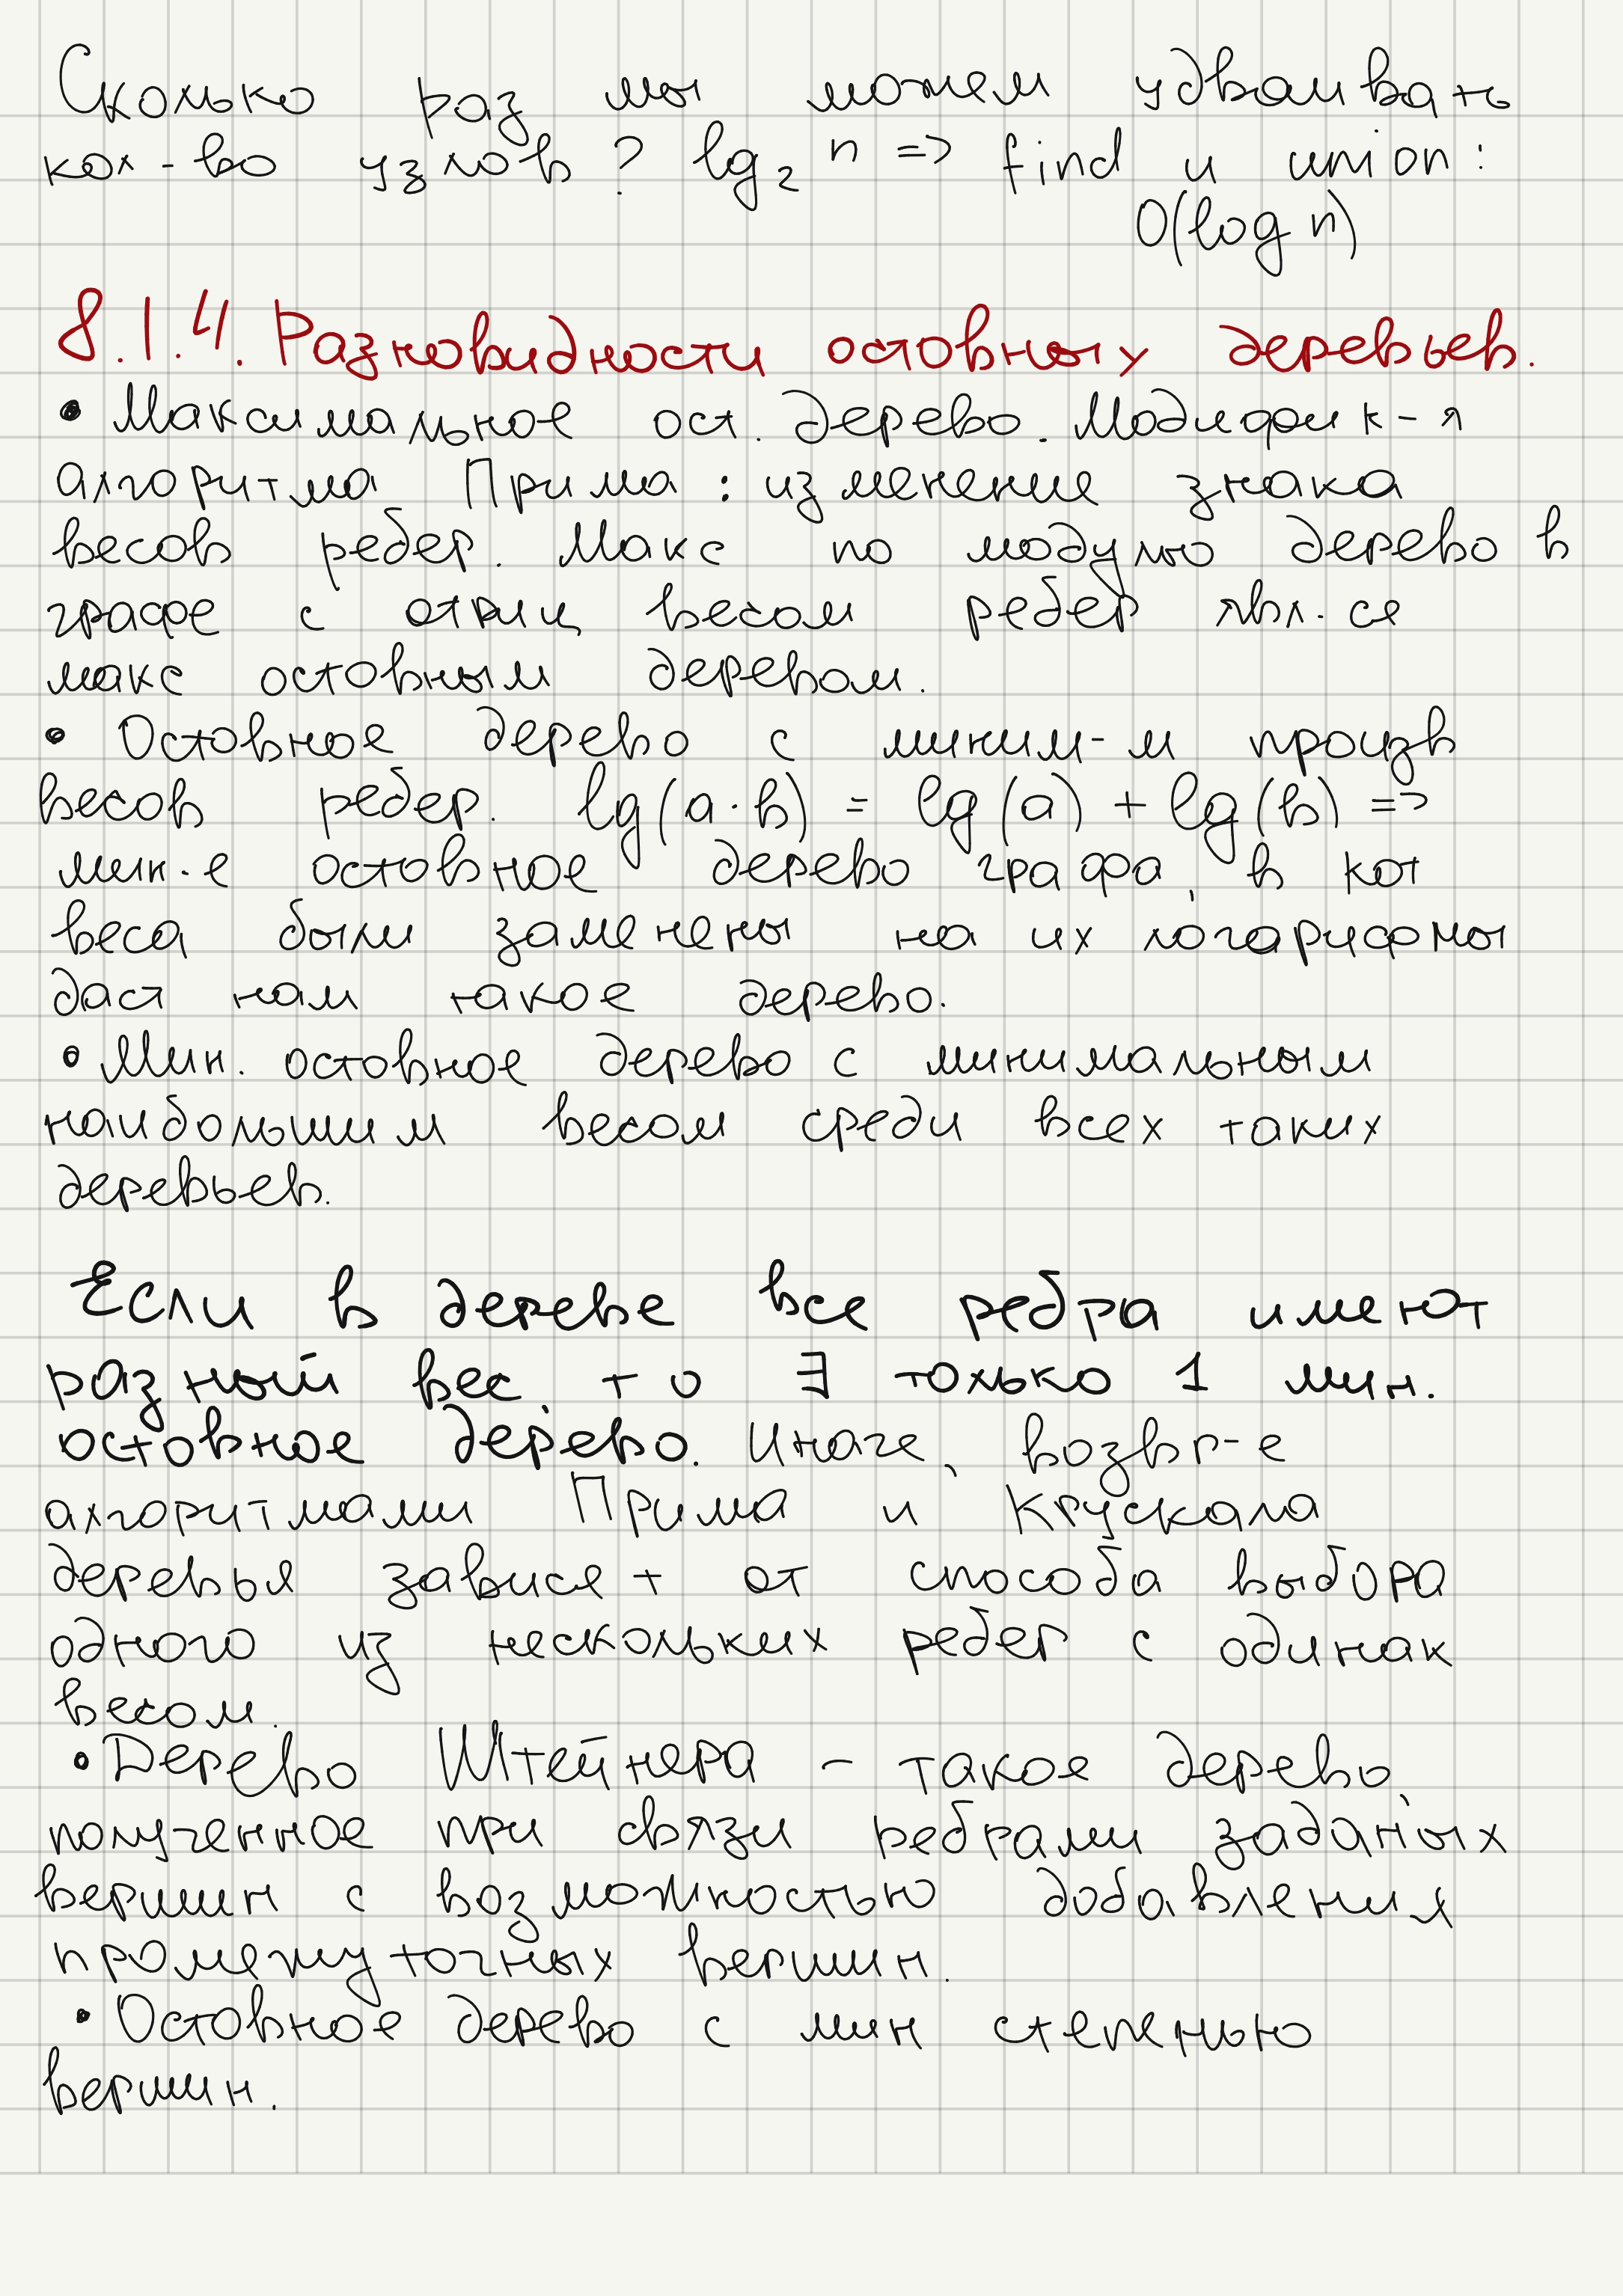 Сколько раз мы можем удваивать
кол-во узлов? lg₂ n => find и union:
O(log n)
8.1.4. Разновидности остовных деревьев.
• Максимальное ост. дерево. Модифик-я
алгоритма Прима: изменение знака
весов ребер. Макс по модулю дерево в
графе с отриц весом ребер явл-ся
макс остовным деревом.
• Остовное дерево с миним-м произв
весов ребер. lg(a·b) = lg(a) + lg(b) =>
мин-е остовное дерево графа, в кот
веса были заменены на их логарифмы
даст нам такое дерево.
• Мин. остовное дерево с минимальным
наибольшим весом среди всех таких
деревьев.
Если в дереве все ребра имеют
разный вес, то ∃ только 1 мин.
остовное дерево. Иначе, возвр-е
алгоритмами Прима и Крускала
деревья зависят от способа выбора
одного из нескольких ребер с одинак
весом.
• Дерево Штейнера - такое дерево,
полученное при связи ребрами заданых
вершин с возможностью добавления
промежуточных вершин.
• Остовное дерево с мин степенью
вершин.